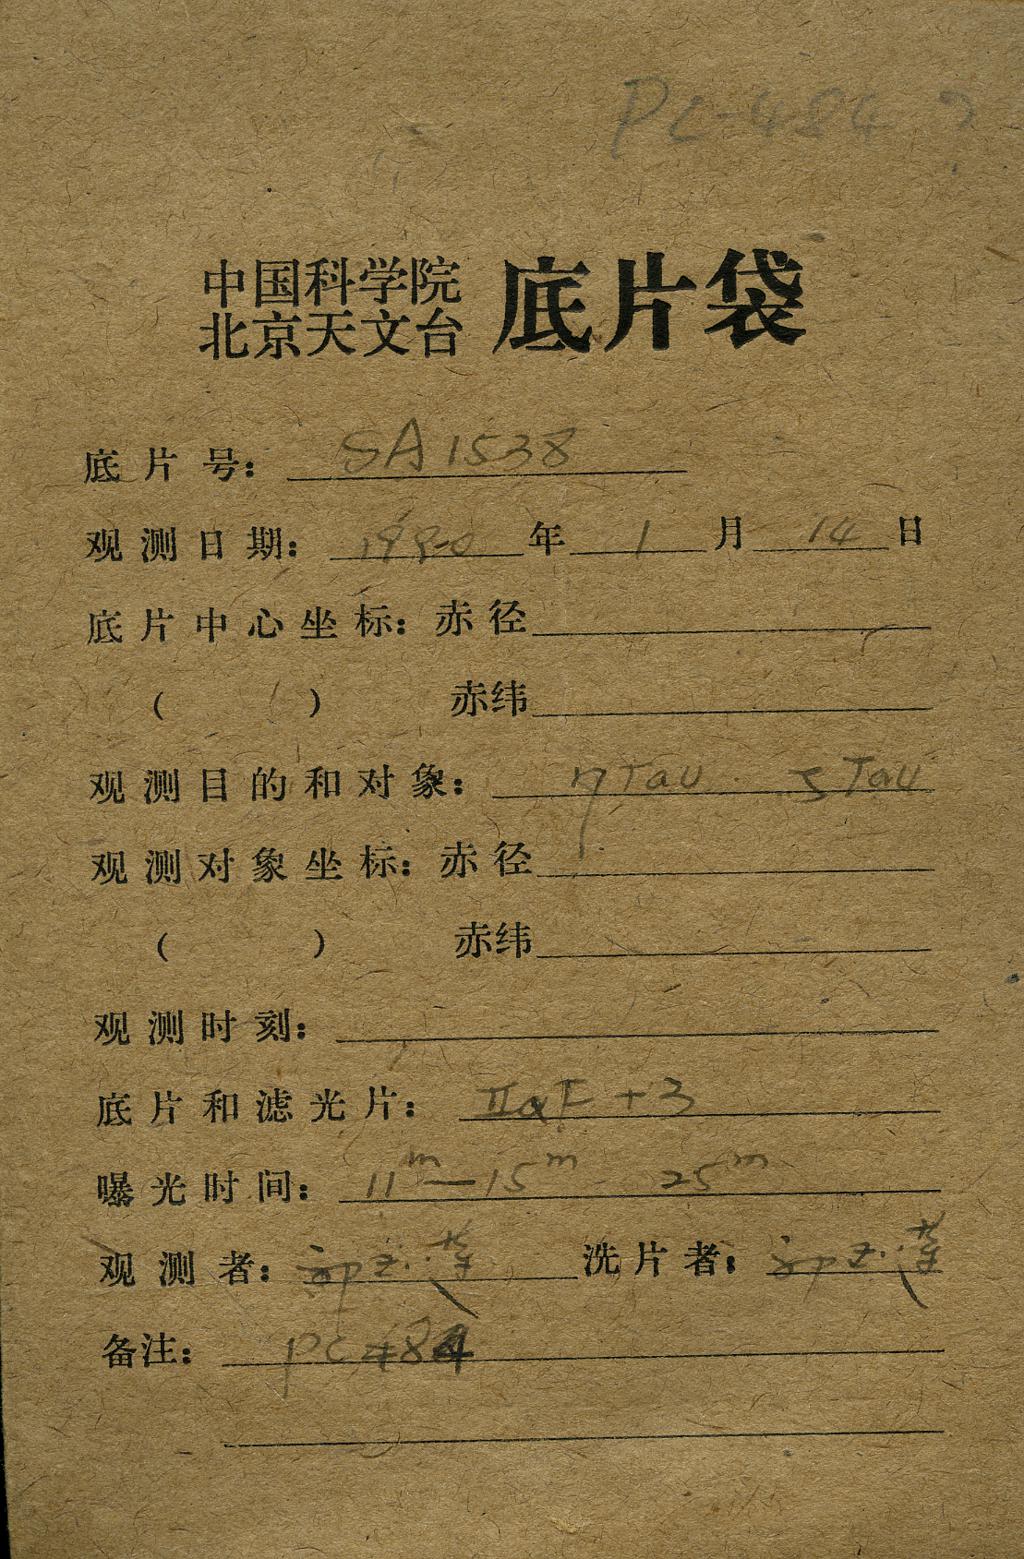 PC-484
中国科学院
北京天文台 底片袋
底片号: SA1538
观测日期: 1990年1月14日
底片中心坐标: 赤径
( ) 赤纬
观测目的和对象: η Tau ζ Tau
观测对象坐标: 赤径
( ) 赤纬
观测时刻:
底片和滤光片: IIaF+3
曝光时间: 11m—15m 25m
观测者: 洗片者:
备注: PC484